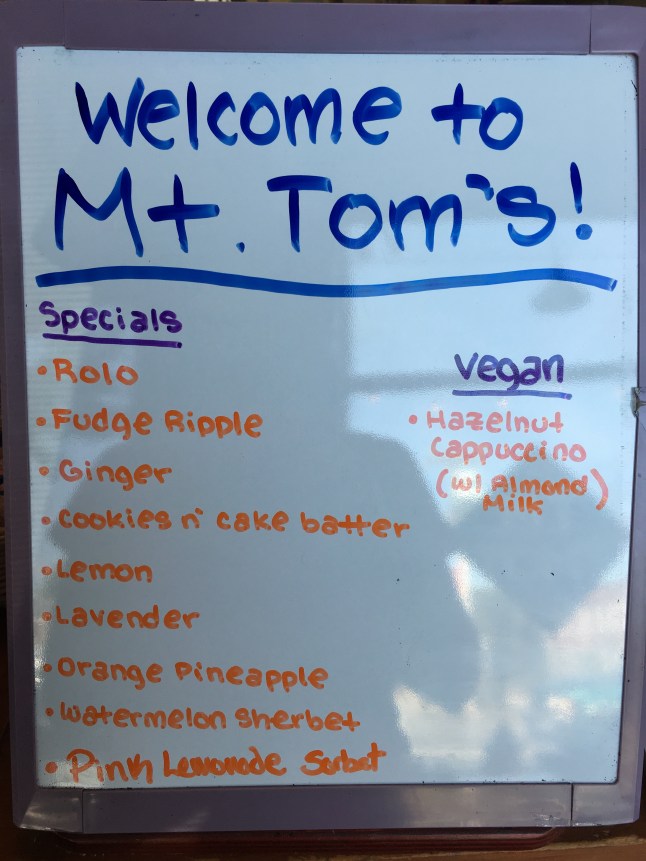 Welcome to
Mt. Tom's!
Specials
• Rolo
• Fudge Ripple
• Ginger
• Cookies n' cake batter
• Lemon
• Lavender
• Orange Pineapple
• Watermelon Sherbet
• Pink Lemonade Sorbet
Vegan
• Hazelnut
Cappuccino
(w/ Almond
Milk)